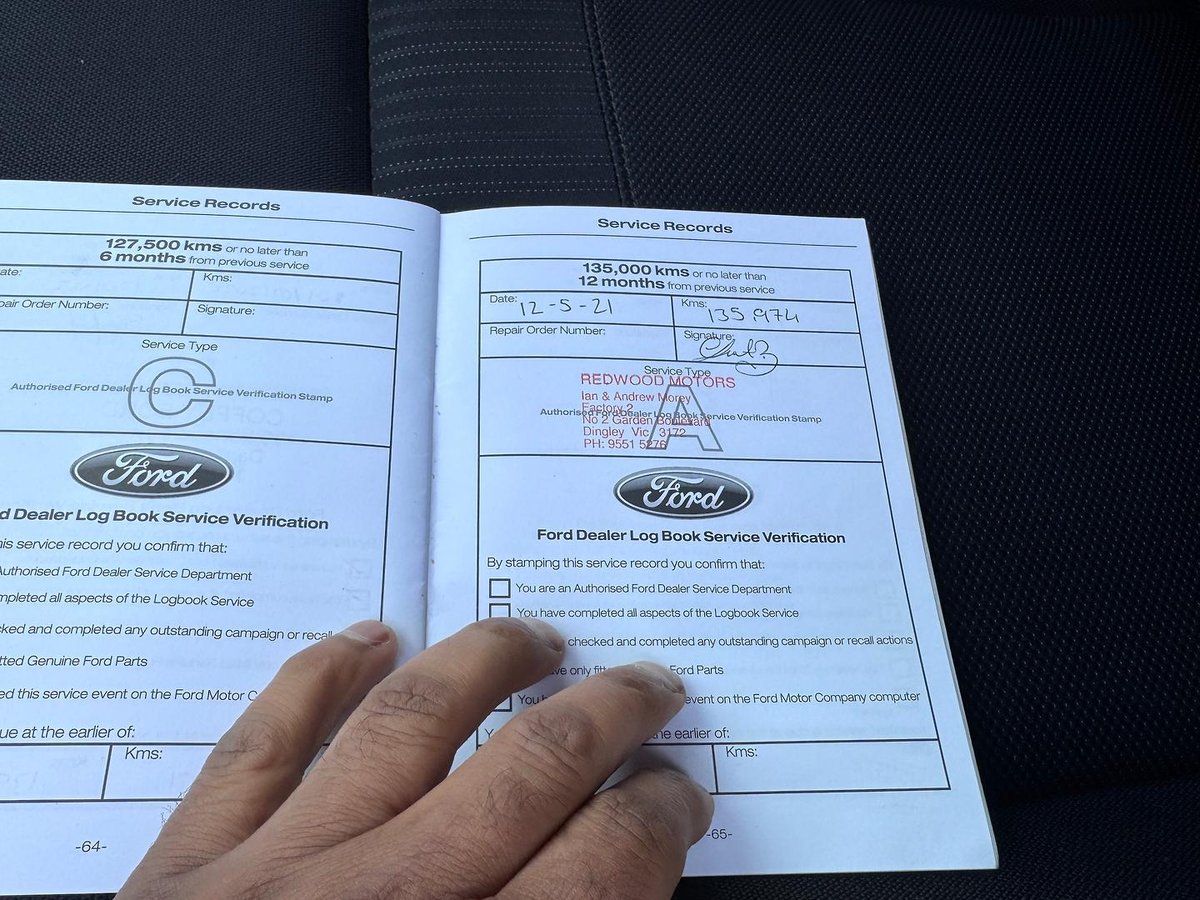 Service Records
127,500 kms or no later than
6 months from previous service
ate:
Kms:
pair Order Number:
Signature:
Service Type
C
Authorised Ford Dealer Log Book Service Verification Stamp
Ford
d Dealer Log Book Service Verification
his service record you confirm that:
Authorised Ford Dealer Service Department
mpleted all aspects of the Logbook Service
cked and completed any outstanding campaign or recall
tted Genuine Ford Parts
ed this service event on the Ford Motor C
ue at the earlier of:
Kms:
-64-
Service Records
135,000 kms or no later than
12 months from previous service
Date: 12-5-21
Kms: 135,974
Repair Order Number:
Signature:
Service Type
A
REDWOOD MOTORS
Ian & Andrew Morey
Factory 2
Authorised Ford Dealer Log Book Service Verification Stamp
No 2 Garden Boulevard
Dingley Vic 3172
PH: 9551 5276
Ford
Ford Dealer Log Book Service Verification
By stamping this service record you confirm that:
You are an Authorised Ford Dealer Service Department
You have completed all aspects of the Logbook Service
checked and completed any outstanding campaign or recall actions
ve only fitt Ford Parts
You h event on the Ford Motor Company computer
Y he earlier of:
Kms:
-65-